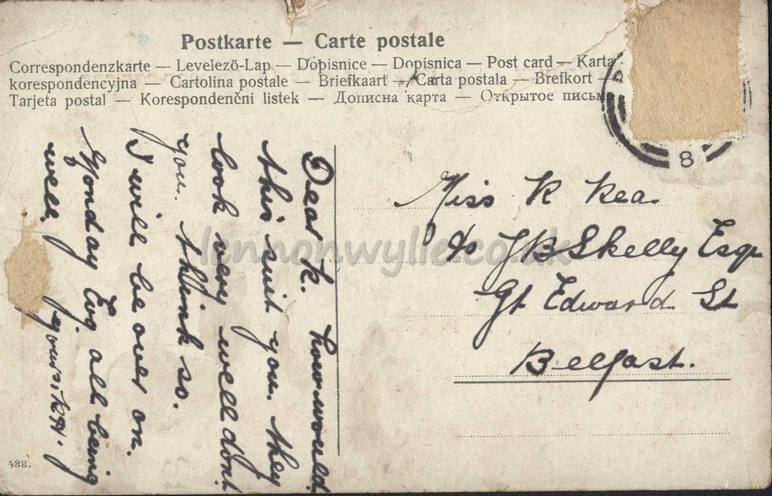 Postkarte — Carte postale
Correspondenzkarte — Levelező-Lap — Dopisnice — Dopisnica — Post card — Karta
korespondencyjna — Cartolina postale — Briefkaart — Carta postala — Brefkort —
Tarjeta postal — Korespondenční listek — Дописна карта — Открытое письмо
8
Dear K. how would
this suit you. they
look very well dont
you. think so.
I will be over on.
Monday Evg all being
well. yours. KH.
Miss K Kea.
c/o J B Skelly Esqr
Gt Edward St
Belfast.
lennonwylie.co.uk
488.